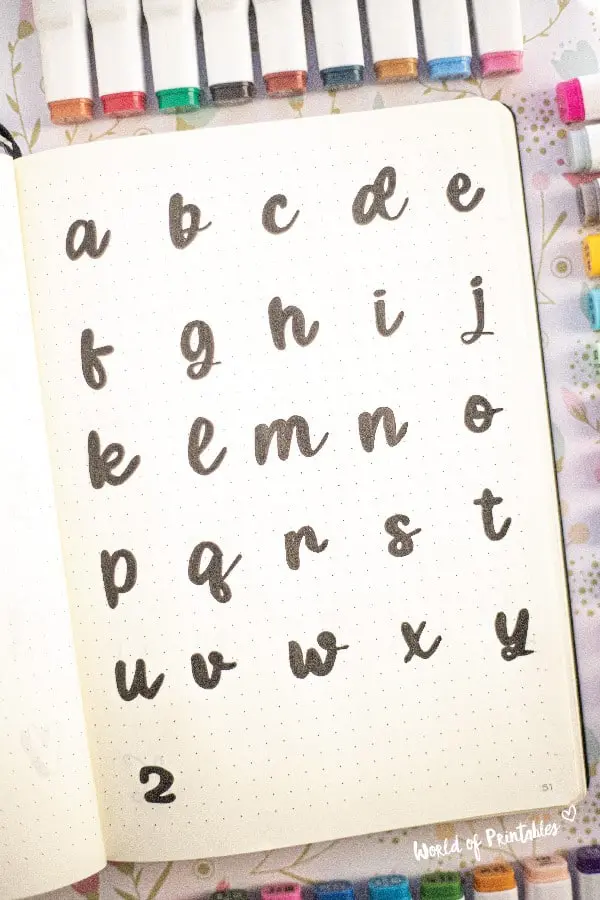 a b c d e
f g h i j
k l m n o
p q r s t
u v w x y
2
51
World of Printables